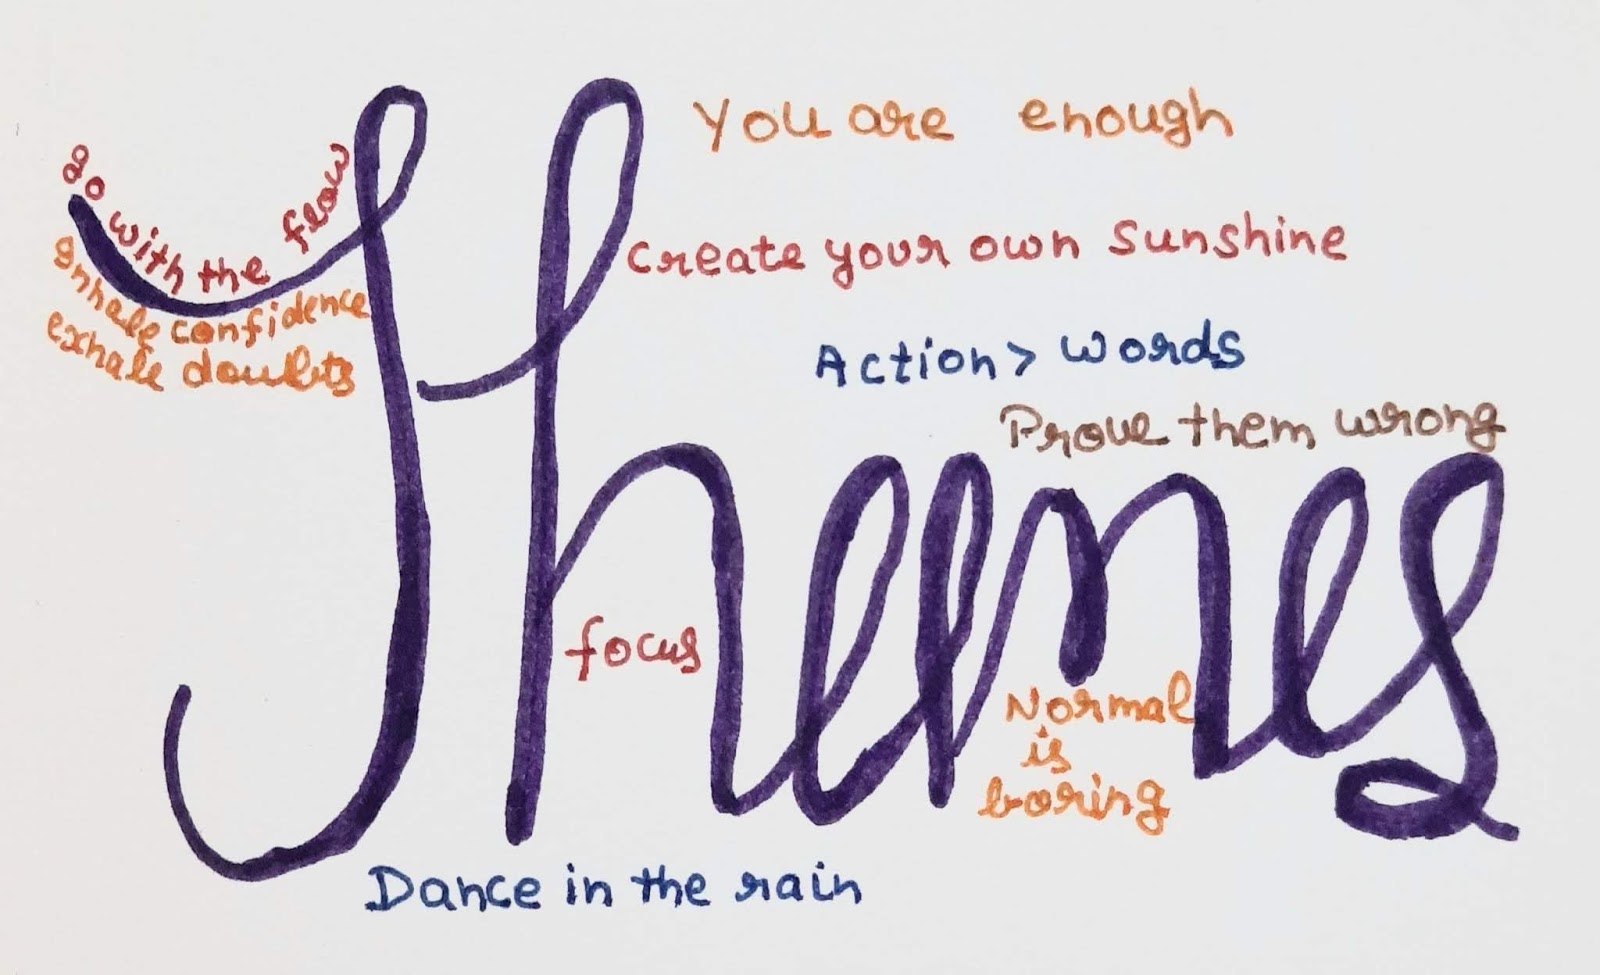 You are enough
go with the flow
create your own sunshine
Inhale confidence
exhale doubts
Action > words
Prove them wrong
Themes
focus
Normal
is
boring
Dance in the rain